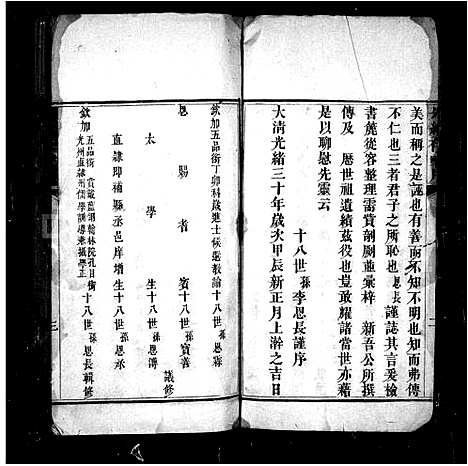 美而稱之是誣也有善而不知不明也知而弗傳
不仁也三者君子之所恥也恩長謹誌其言爰檢
書麓從容整理需資剞劂並彙梓　新吾公所撰
傳及　歷世祖遺績茲役也豈敢耀諸當世亦藉
是以聊慰先靈云
十八世孫李恩長謹序
大清光緒三十年歲次甲辰新正月上澣之吉日
欽加五品銜丁卯科歲進士候選教諭十八世孫恩縣
恩賜耆賓十八世孫寶善
太學生十八世孫恩溥　議修
直隸即補縣丞邑庠增生十八世孫恩承
欽加五品銜賞戴藍翎翰林院孔目銜光州直隸州儒學訓導兼攝學正十八世孫恩長輯修
二
三